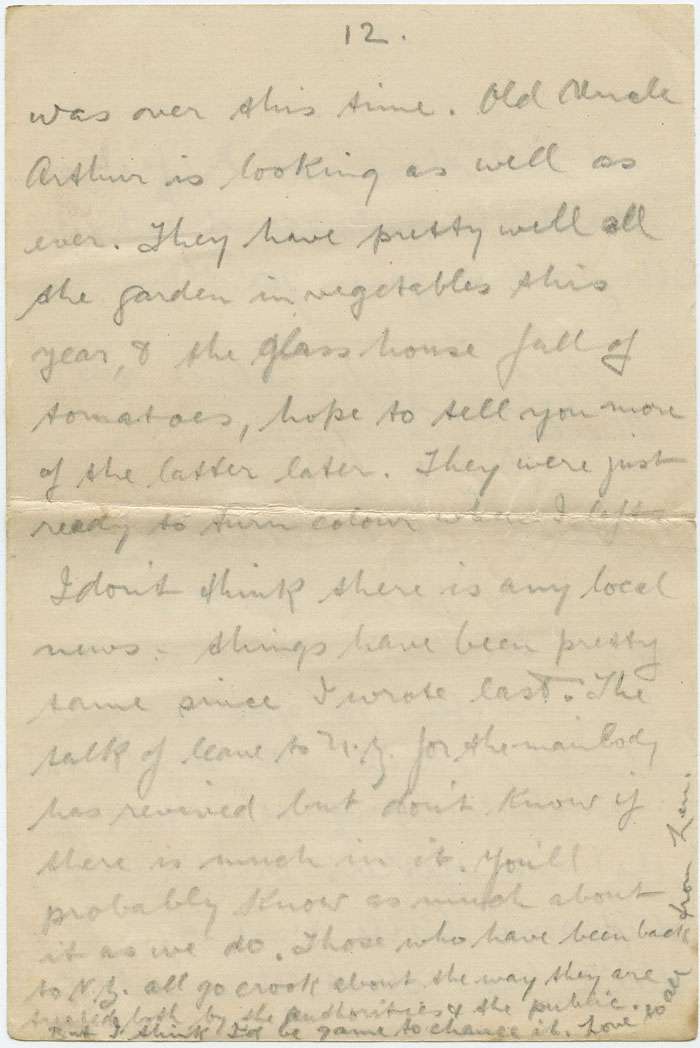 12.
was over this time. Old Uncle
Arthur is looking as well as
ever. They have pretty well all
the garden in vegetables this
year, & the glass house full of
tomatoes, hope to tell you more
of the latter later. They were just
ready to turn colour when I left.
I don't think there is any local
news. things have been pretty
tame since I wrote last. The
talk of leave to N.Z. for the main body
has revived but don't know if
there is much in it. You'll
probably know as much about
it as we do. Those who have been back
to N.Z. all go crook about the way they are
treated both by the authorities & the public.
But I think I'd be game to chance it. Love to all
from Len.